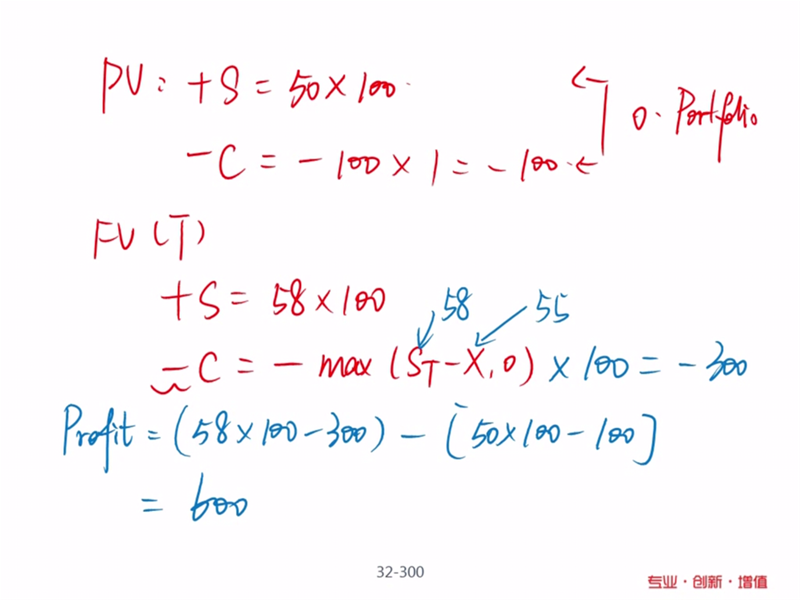 PV: +S = 50 × 100
0. Portfolio
-C = -100 × 1 = -100
FV (T)
+S = 58 × 100
58
55
-C = - max (S_T - X, 0) × 100 = -300
Profit = (58 × 100 - 300) - [50 × 100 - 100]
= 600
32-300
专业·创新·增值